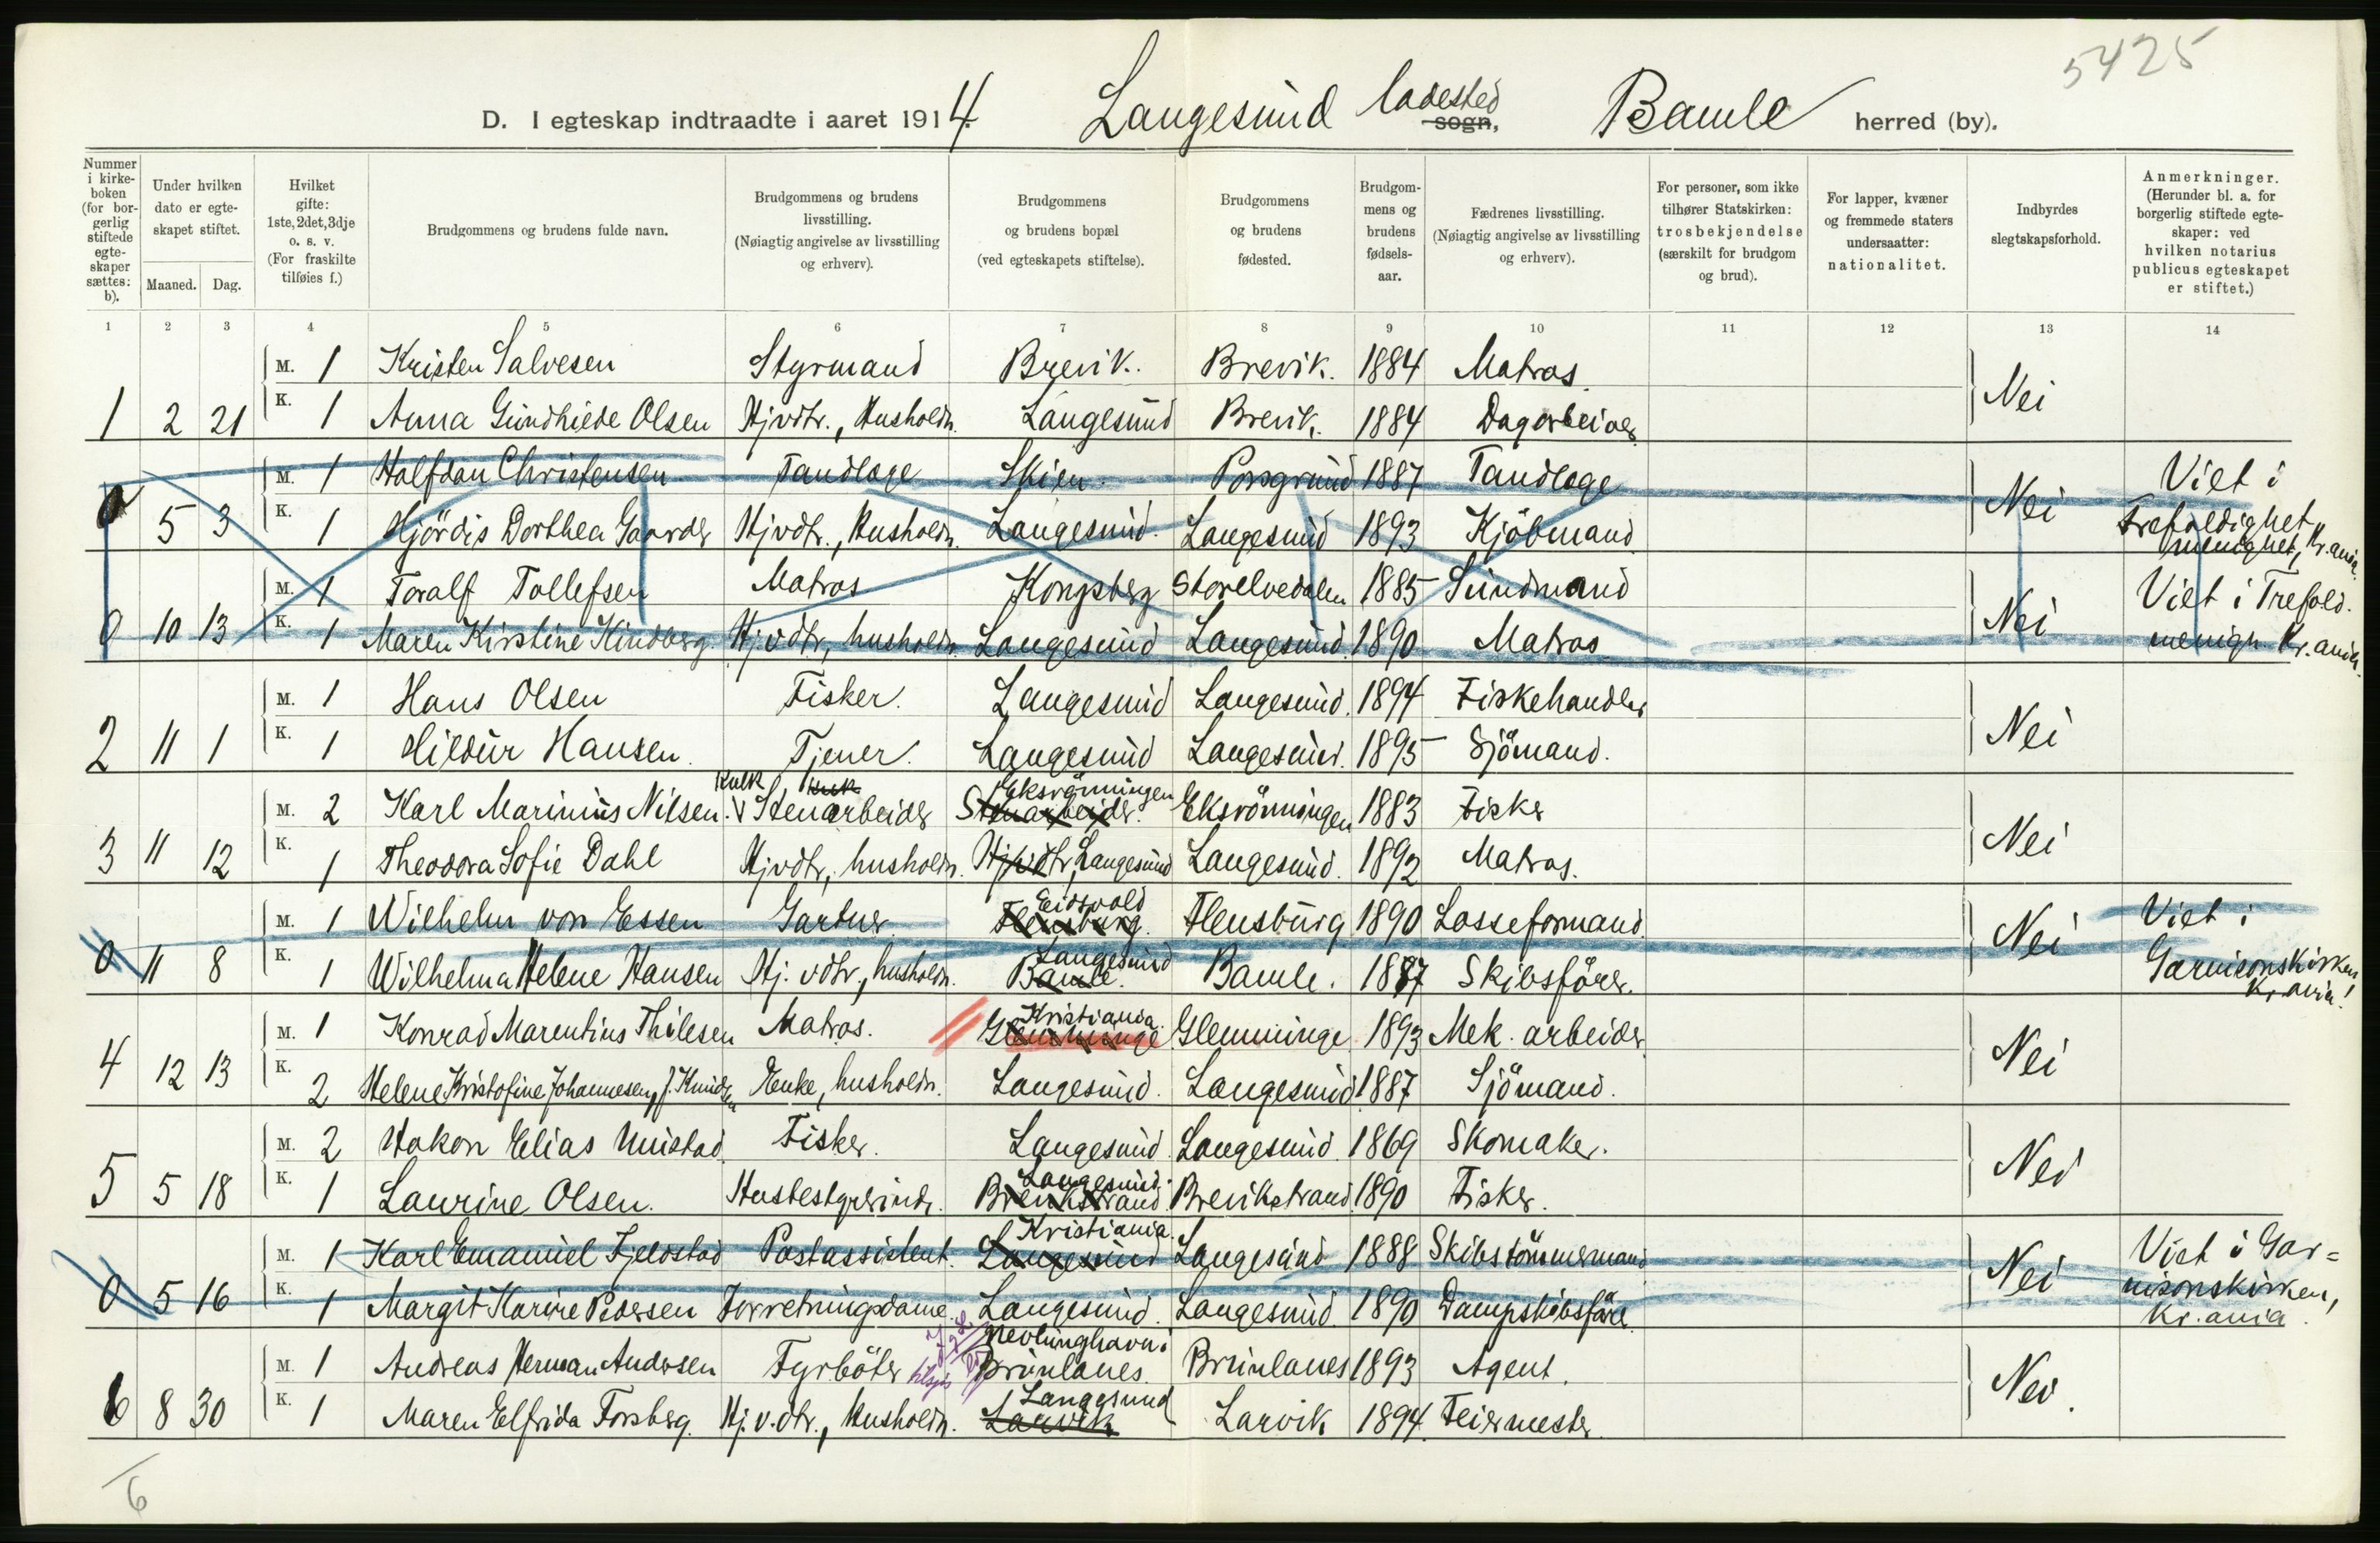 5425
D. I egteskap indtraadte i aaret 1914. Langesund ladested sogn, Bamle herred (by).
Nummer i kirkeboken (for borgerlig stiftede egteskaper sættes: b).
Under hvilken dato er egteskapet stiftet.
Maaned. Dag.
Hvilket gifte: 1ste, 2det, 3dje o. s. v. (For fraskilte tilføies f.)
Brudgommens og brudens fulde navn.
Brudgommens og brudens livsstilling. (Nøiagtig angivelse av livsstilling og erhverv).
Brudgommens og brudens bopæl (ved egteskapets stiftelse).
Brudgommens og brudens fødested.
Brudgommens og brudens fødselsaar.
Fædrenes livsstilling. (Nøiagtig angivelse av livsstilling og erhverv).
For personer, som ikke tilhører Statskirken: trosbekjendelse (særskilt for brudgom og brud).
For lapper, kvæner og fremmede staters undersaatter: nationalitet.
Indbyrdes slegtskapsforhold.
Anmerkninger. (Herunder bl. a. for borgerlig stiftede egteskaper: ved hvilken notarius publicus egteskapet er stiftet.)
1 2 3 4 5 6 7 8 9 10 11 12 13 14
M. 1 Kristen Salvesen Styrmand Brevik. Brevik. 1884 Matros.
1 2 21 K. 1 Anna Gundhilde Olsen Hjvdtr., Husholdn. Langesund Brevik. 1884 Dagarbeider Nei
M. 1 Halfdan Christensen Tandlæge Skien. Porsgrund 1887 Tandlæge Viet i
0 5 3 K. 1 Hjördis Dorthea Gaarder Hjvdtr., Husholdn. Langesund. Langesund 1893 Kjöbmand Nei Trefoldighet menighet, Kr.ania.
M. 1 Toralf Tollefsen Matros Kongsberg Storelvedalen 1885 Sundmand Viet i Trefold.
0 10 13 K. 1 Maren Kirstine Kindberg. Hj.vdtr, husholdn. Langesund Langesund. 1890 Matros Nei menigh. Kr.ania.
M. 1 Hans Olsen Fisker. Langesund Langesund. 1894 Fiskehandler
2 11 1 K. 1 Hildur Hansen. Tjener. Langesund Langesund. 1895 Sjömand. Nei
Kulk Kulk Eksrönningen
M. 2 Karl Marinius Nilsen. V Stenarbeider Stenarbeider. Eksrönningen 1883 Fisker
3 11 12 K. 1 Theodora Sofie Dahl Hjvdtr, husholdn. Hjvdtr, Langesund Langesund. 1892 Matros. Nei
Eidsvold
M. 1 Wilhelm von Essen Gartner. Flensburg. Flensburg 1890 Losseformand. Viet i
Langesund
0 11 8 K. 1 Wilhelma Helene Hansen Hj. vdtr., husholdn. Bamle. Bamle. 1887 Skibsförer. Nei Garnisonskirken Kr.ania!
Kristiania.
M. 1 Konrad Marentius Thilesen Matros. Glemminge Glemminge 1893 Mek. arbeider
4 12 13 K. 2 Helene Kristofine Johannesen, f. Knudsen Enke, husholdn. Langesund. Langesund 1887 Sjömand. Nei
M. 2 Hakon Elias Unistad. Fisker. Langesund. Langesund. 1869 Skomaker.
Langesund.
5 5 18 K. 1 Laurine Olsen. Husbestyrerinde. Brevikstrand. Brevikstrand 1890 Fisker. Nei
Kristiania.
M. 1 Karl Emanuel Fjeldstad Postassistent. Langesund Langesund 1888 Skibstömmermand Viet i Gar=
0 5 16 K. 1 Margit Karine Pedersen Forretningsdame. Langesund. Langesund. 1890 Dampskibsförer. Nei nisonskirken, Kr.ania.
Nevlunghavn i
M. 1 Andreas Herman Andersen Fyrböter Brunlanes. Brunlanes 1893 Agent.
Langesund
6 8 30 K. 1 Maren Elfrida Forsberg. Hj.v.dtr., Husholdn. Larvik Larvik 1894. Feiermester. Nei.
6